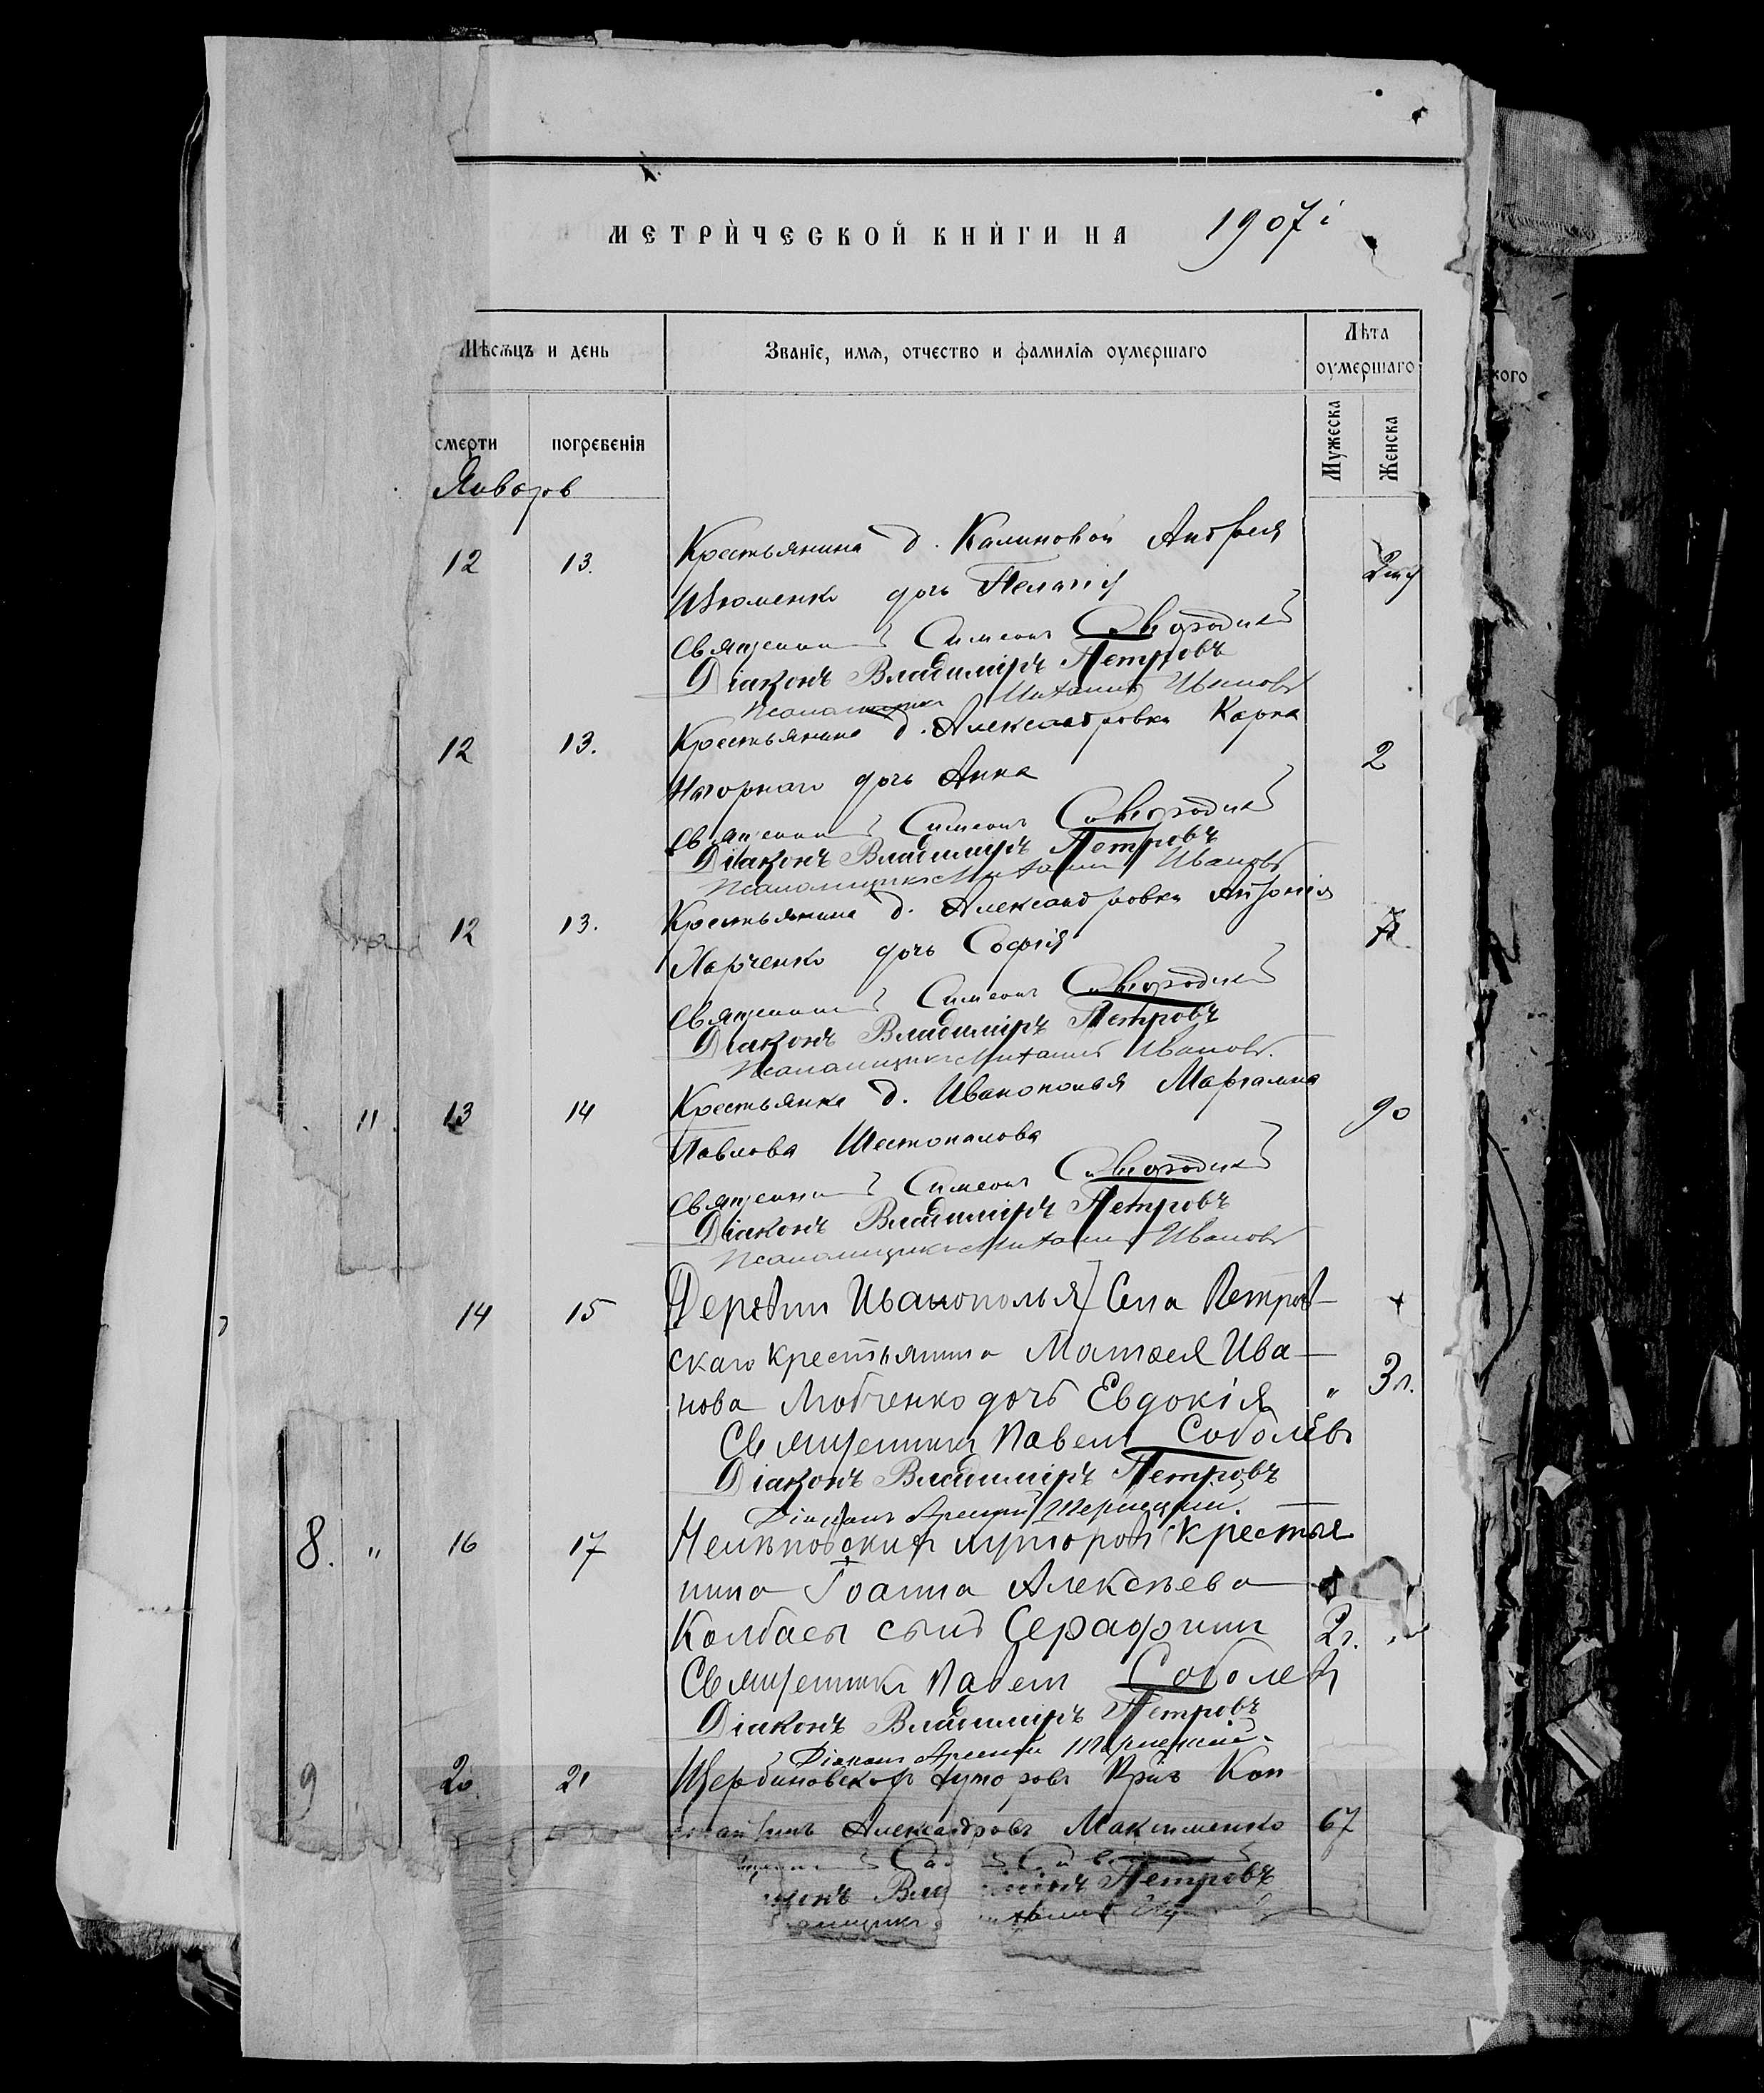 МЕТРИЧЕСКОЙ КНИГИ НА 1907 г
Мѣсяцъ и день
Званіе, имя, отчество и фамилія оумершаго
Лѣта оумершаго
кого
смерти
погребенія
Мужеска
Женска
Январь
12 13. Крестьянина д. Калиновой Андрея
Изюменко дочь Пелагія
Священникъ Симеонъ
Діаконъ Владимиръ Петровъ
Псаломщикъ Михаилъ Ивановъ
12 13. Крестьянина д. Александровки Карпа
Нагорнаго дочь Анна 2
Священникъ Симеонъ
Діаконъ Владимиръ Петровъ
Псаломщикъ Михаилъ Ивановъ
12 13. Крестьянина д. Александровки Антонія
Харченко дочь Софія
Священникъ Симеонъ
Діаконъ Владимиръ Петровъ
Псаломщикъ Михаилъ Ивановъ.
" 13 14 Крестьянка д. Иванополья 90
Павлова Шестопалова
Священникъ Симеонъ
Діаконъ Владимиръ Петровъ
Псаломщикъ Михаилъ Ивановъ
14 15 Деревни Иванополья Села Петров-
скаго крестьянина Матвея Ива-
нова Любченко дочь Евдокія " 3 л.
Священникъ Павелъ Соболевъ
Діаконъ Владимиръ Петровъ
Діаконъ Арсеній
8. " 16 17 хуторовъ крестья
нина Іоанна Алексѣева
Колбасы сынъ Серафимъ 2 г. "
Священникъ Павелъ Соболевъ
Діаконъ Владимиръ Петровъ
Діаконъ Арсеній
9 20. 21 Щербиновскихъ хуторовъ Кон
Александровъ Максименко 67
Петровъ